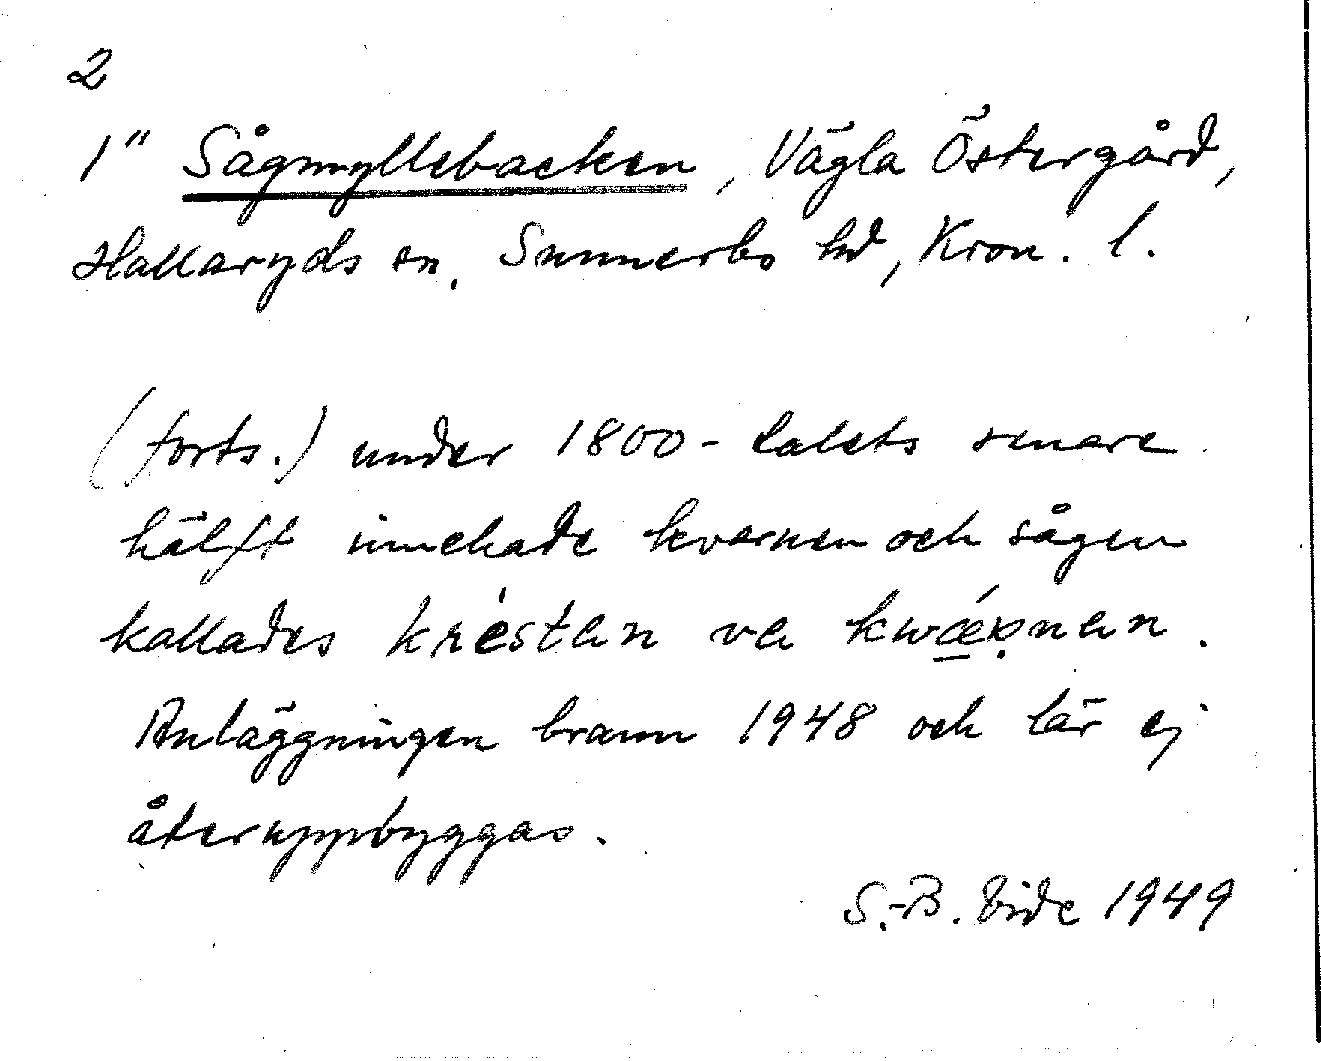 2
1" Sågmyllebacken, Vägla Östergård,
Hallaryds sn. Sunnerbo hd, Kron. l.
(forts.) under 1800-talets senare
hälft innehade kvarnen och sågen
kallades krèstan va kwǽṛnan.
Anläggningen brann 1948 och lär ej
återuppbyggas.
S.-B. Vide 1949